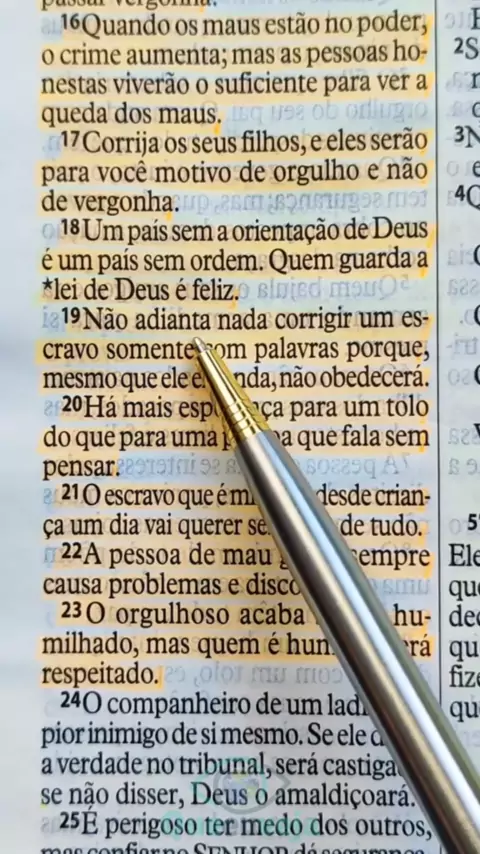 passar vergonha.
16 Quando os maus estão no poder,
o crime aumenta; mas as pessoas ho-
nestas viverão o suficiente para ver a
queda dos maus.
17 Corrija os seus filhos, e eles serão
para você motivo de orgulho e não
de vergonha.
18 Um país sem a orientação de Deus
é um país sem ordem. Quem guarda a
*lei de Deus é feliz.
19 Não adianta nada corrigir um es-
cravo somente com palavras porque,
mesmo que ele e nda, não obedecerá.
20 Há mais esp ça para um tolo
do que para uma p a que fala sem
pensar.
21 O escravo que é mi desde crian-
ça um dia vai querer se de tudo.
22 A pessoa de mau g sempre
causa problemas e disco
23 O orgulhoso acaba hu-
milhado, mas quem é hum rá
respeitado.
24 O companheiro de um lad
pior inimigo de si mesmo. Se ele d
a verdade no tribunal, será castiga
se não disser, Deus o amaldiçoará.
25 É perigoso ter medo dos outros,
mas confiar no SENHOR dá segurança.
2 S
3 N
4 Q
5
Ele
que
dec
qu
fize
qu